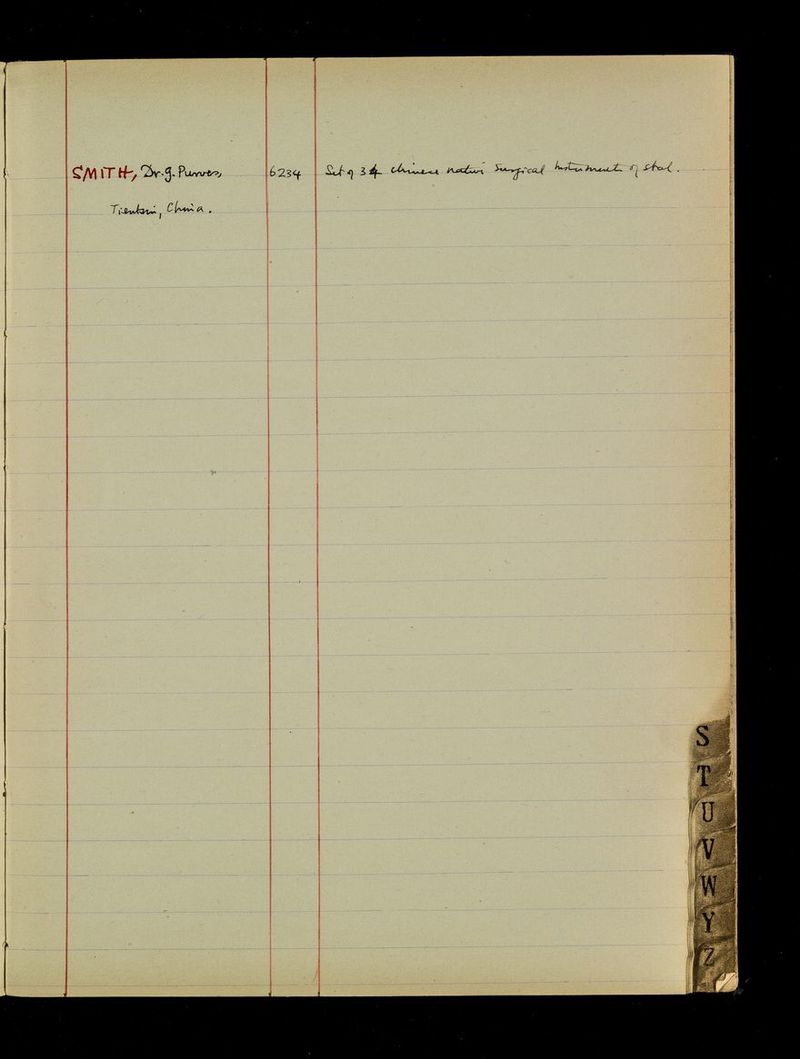 SMITH, Dr. J. Purves, 6234 Set of 34 Chinese native Surgical Instruments of steel.
Tientsin, China.
S
T
U
V
W
Y
Z